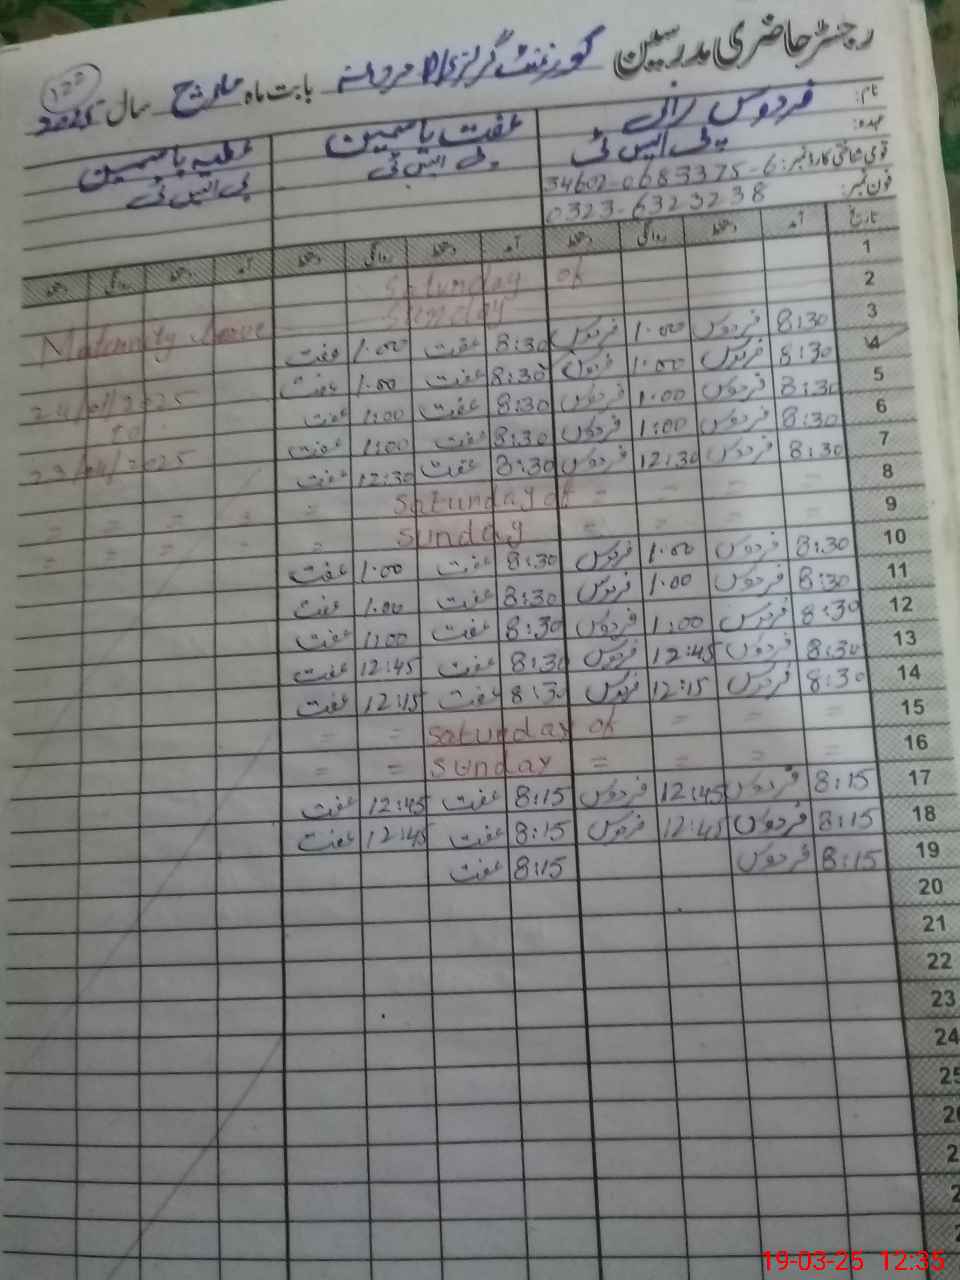 رجسٹر حاضری مدرسین گورنمنٹ گرلز بابت ماہ مارچ سال 2025
نام: فردوس رانی عفت یاسمین عطیہ یاسمین
عہدہ: پی ایس ٹی پی ایس ٹی پی ایس ٹی
قومی شناختی کارڈ نمبر: 34602-0683375-6
فون نمبر: 0323-6323238
تاریخ آمد دستخط روانگی دستخط آمد دستخط روانگی دستخط آمد دستخط روانگی دستخط
1 Saturday of
2 Sunday
3 8:30 فردوس 1:00 فردوس 8:30 عفت 1:00 عفت Maternity Leave
4 8:30 فردوس 1:00 فردوس 8:30 عفت 1:00 عفت
5 8:30 فردوس 1:00 فردوس 8:30 عفت 1:00 عفت 24/01/2025
6 8:30 فردوس 1:00 فردوس 8:30 عفت 1:00 عفت to
7 8:30 فردوس 12:30 فردوس 8:30 عفت 12:30 عفت 23/04/2025
8 = = = = Saturday of = = = = =
9 = = = = Sunday = = = = =
10 8:30 فردوس 1:00 فردوس 8:30 عفت 1:00 عفت
11 8:30 فردوس 1:00 فردوس 8:30 عفت 1:00 عفت
12 8:30 فردوس 1:00 فردوس 8:30 عفت 1:00 عفت
13 8:30 فردوس 12:45 فردوس 8:30 عفت 12:45 عفت
14 8:30 فردوس 12:15 فردوس 8:30 عفت 12:15 عفت
15 = = = Saturday of = =
16 = = = = Sunday = =
17 8:15 فردوس 12:45 فردوس 8:15 عفت 12:45 عفت
18 8:15 فردوس 12:45 فردوس 8:15 عفت 12:45 عفت
19 8:15 فردوس 8:15 عفت
20
21
22
23
24
25
19-03-25 12:35